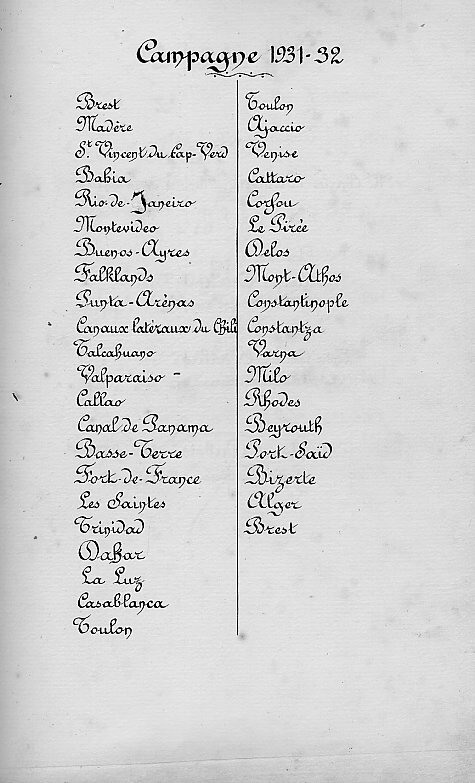 Campagne 1931-32
Brest
Madère
St. Vincent du Cap-Verd
Bahia
Rio-de-Janeiro
Montevideo
Buenos-Ayres
Falklands
Punta-Arénas
Canaux latéraux du Chili
Talcahuano
Valparaiso -
Callao
Canal de Panama
Basse-Terre
Fort-de-France
Les Saintes
Trinidad
Dakar
La Luz
Casablanca
Toulon
Toulon
Ajaccio
Venise
Cattaro
Corfou
Le Pirée
Delos
Mont-Athos
Constantinople
Constantza
Varna
Milo
Rhodes
Beyrouth
Port-Saïd
Bizerte
Alger
Brest